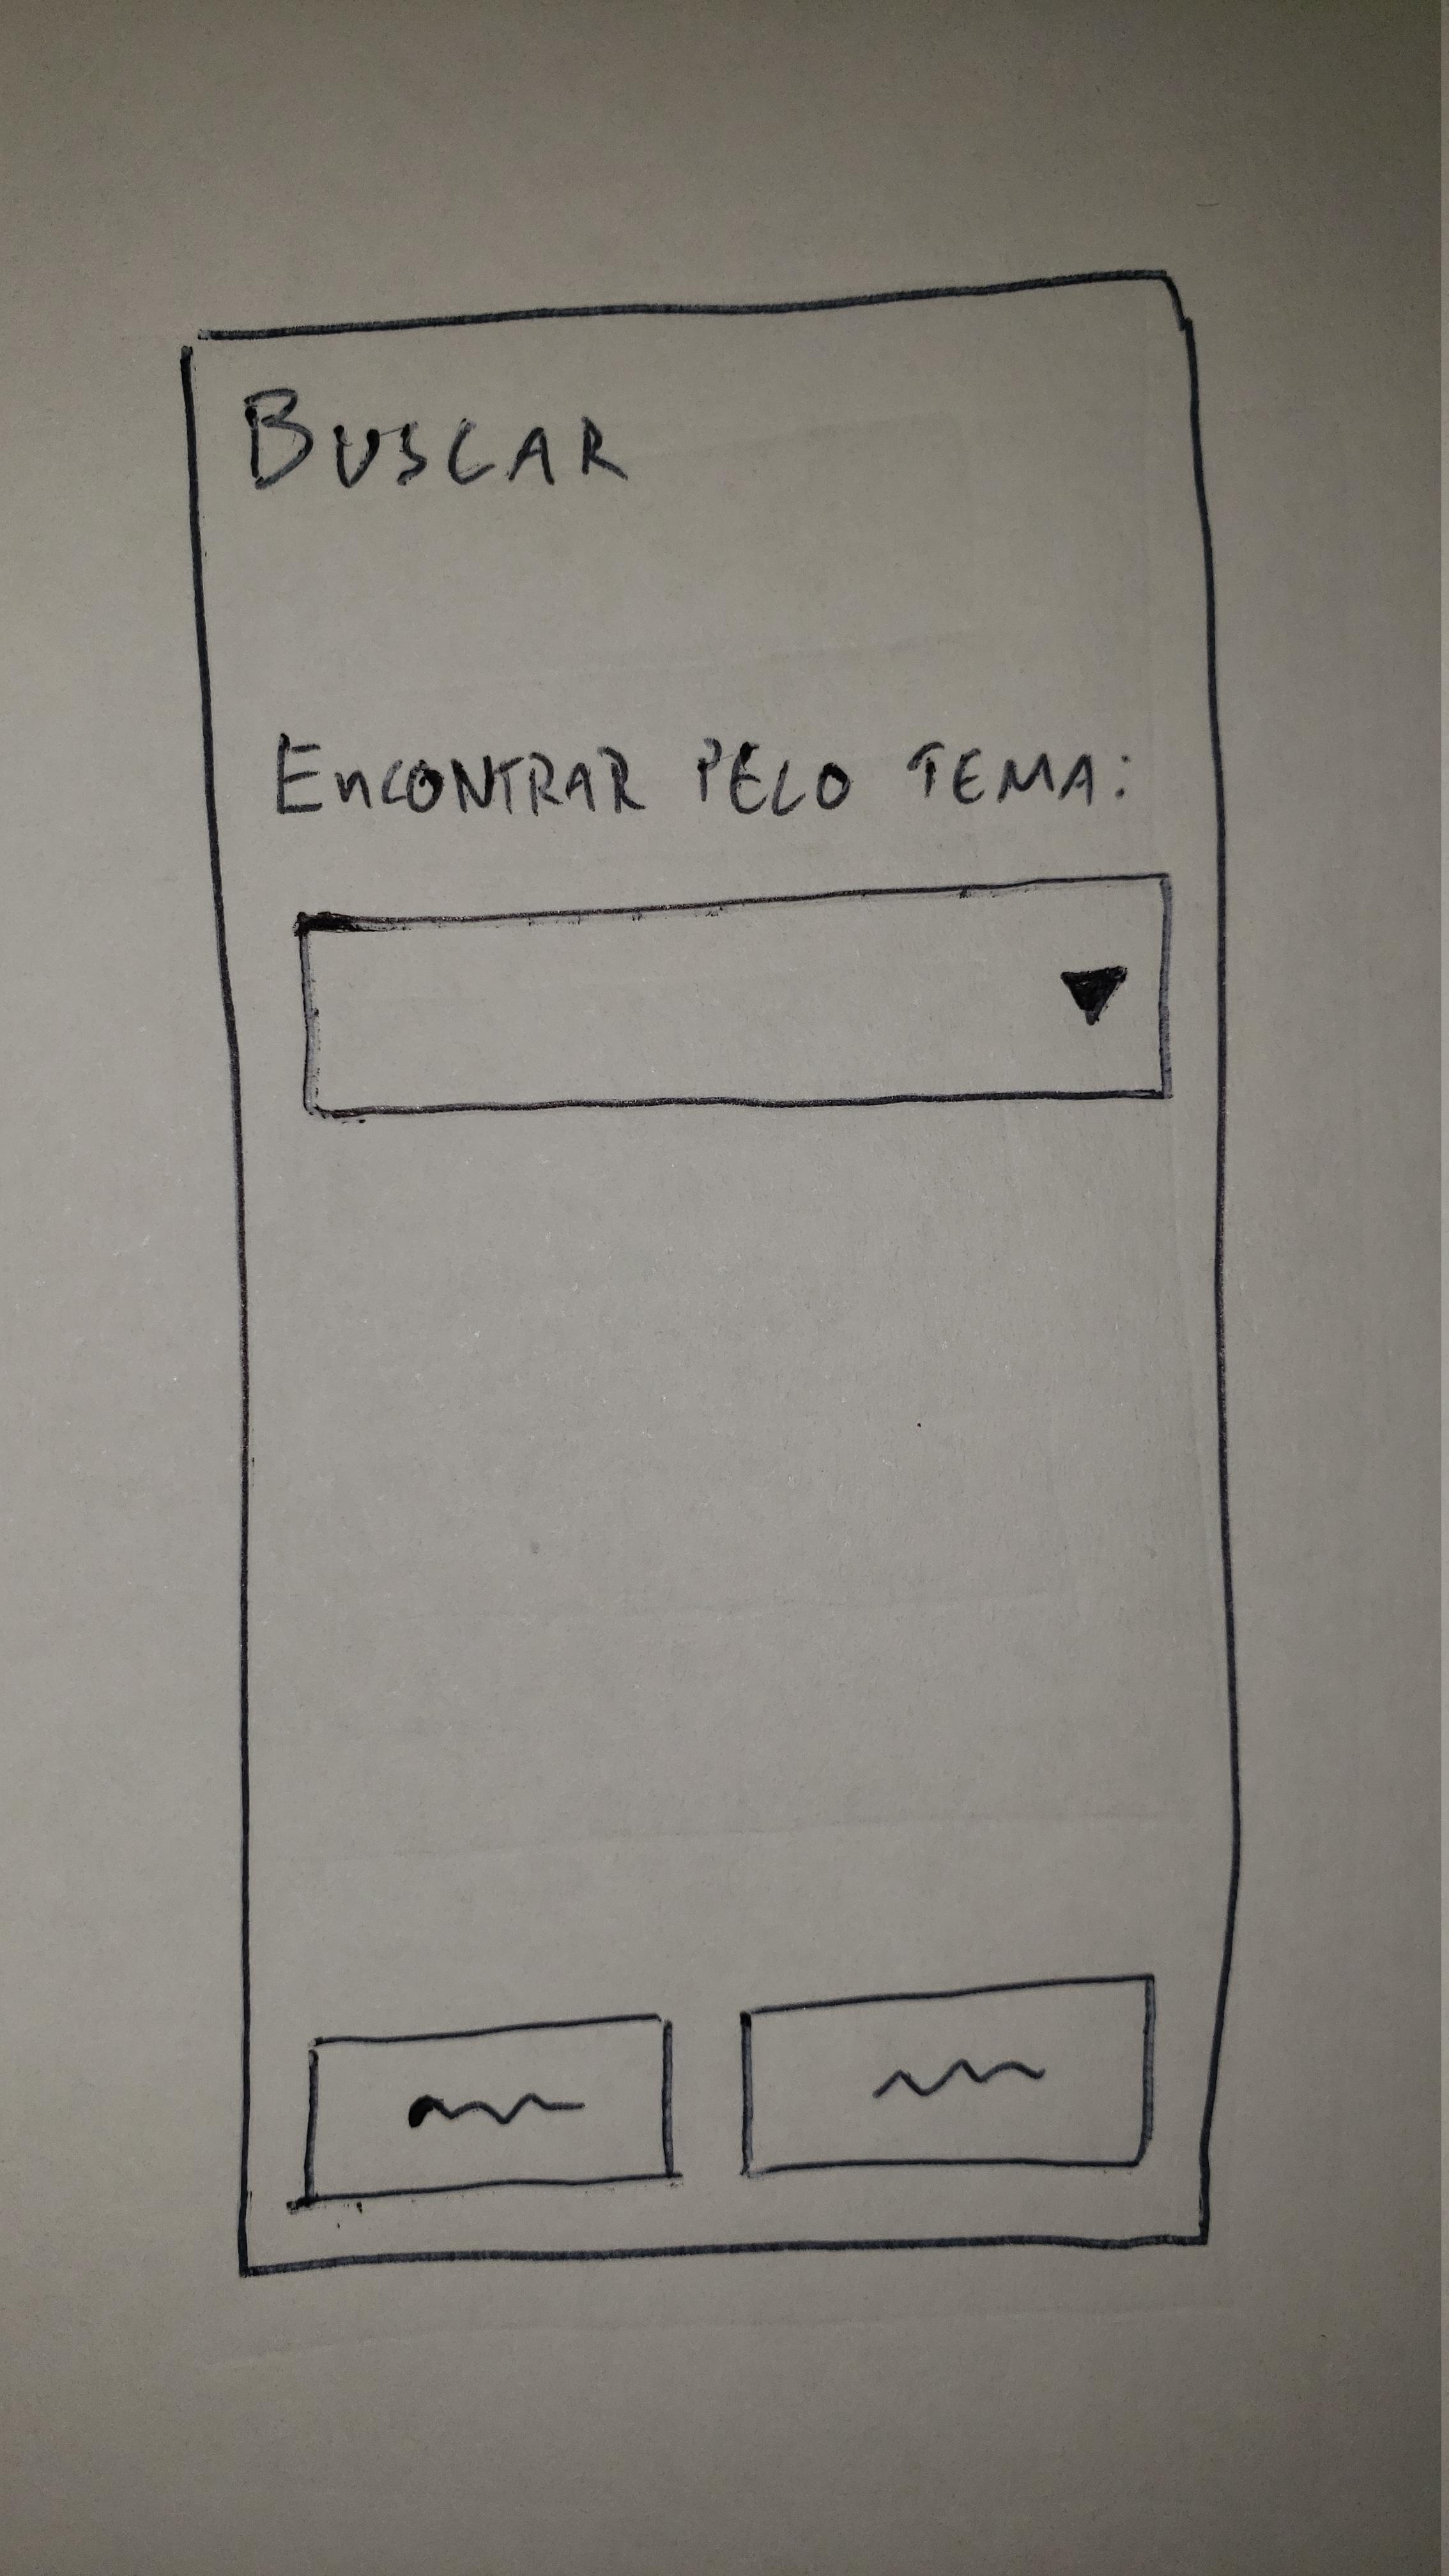 BUSCAR
ENCONTRAR PELO TEMA: